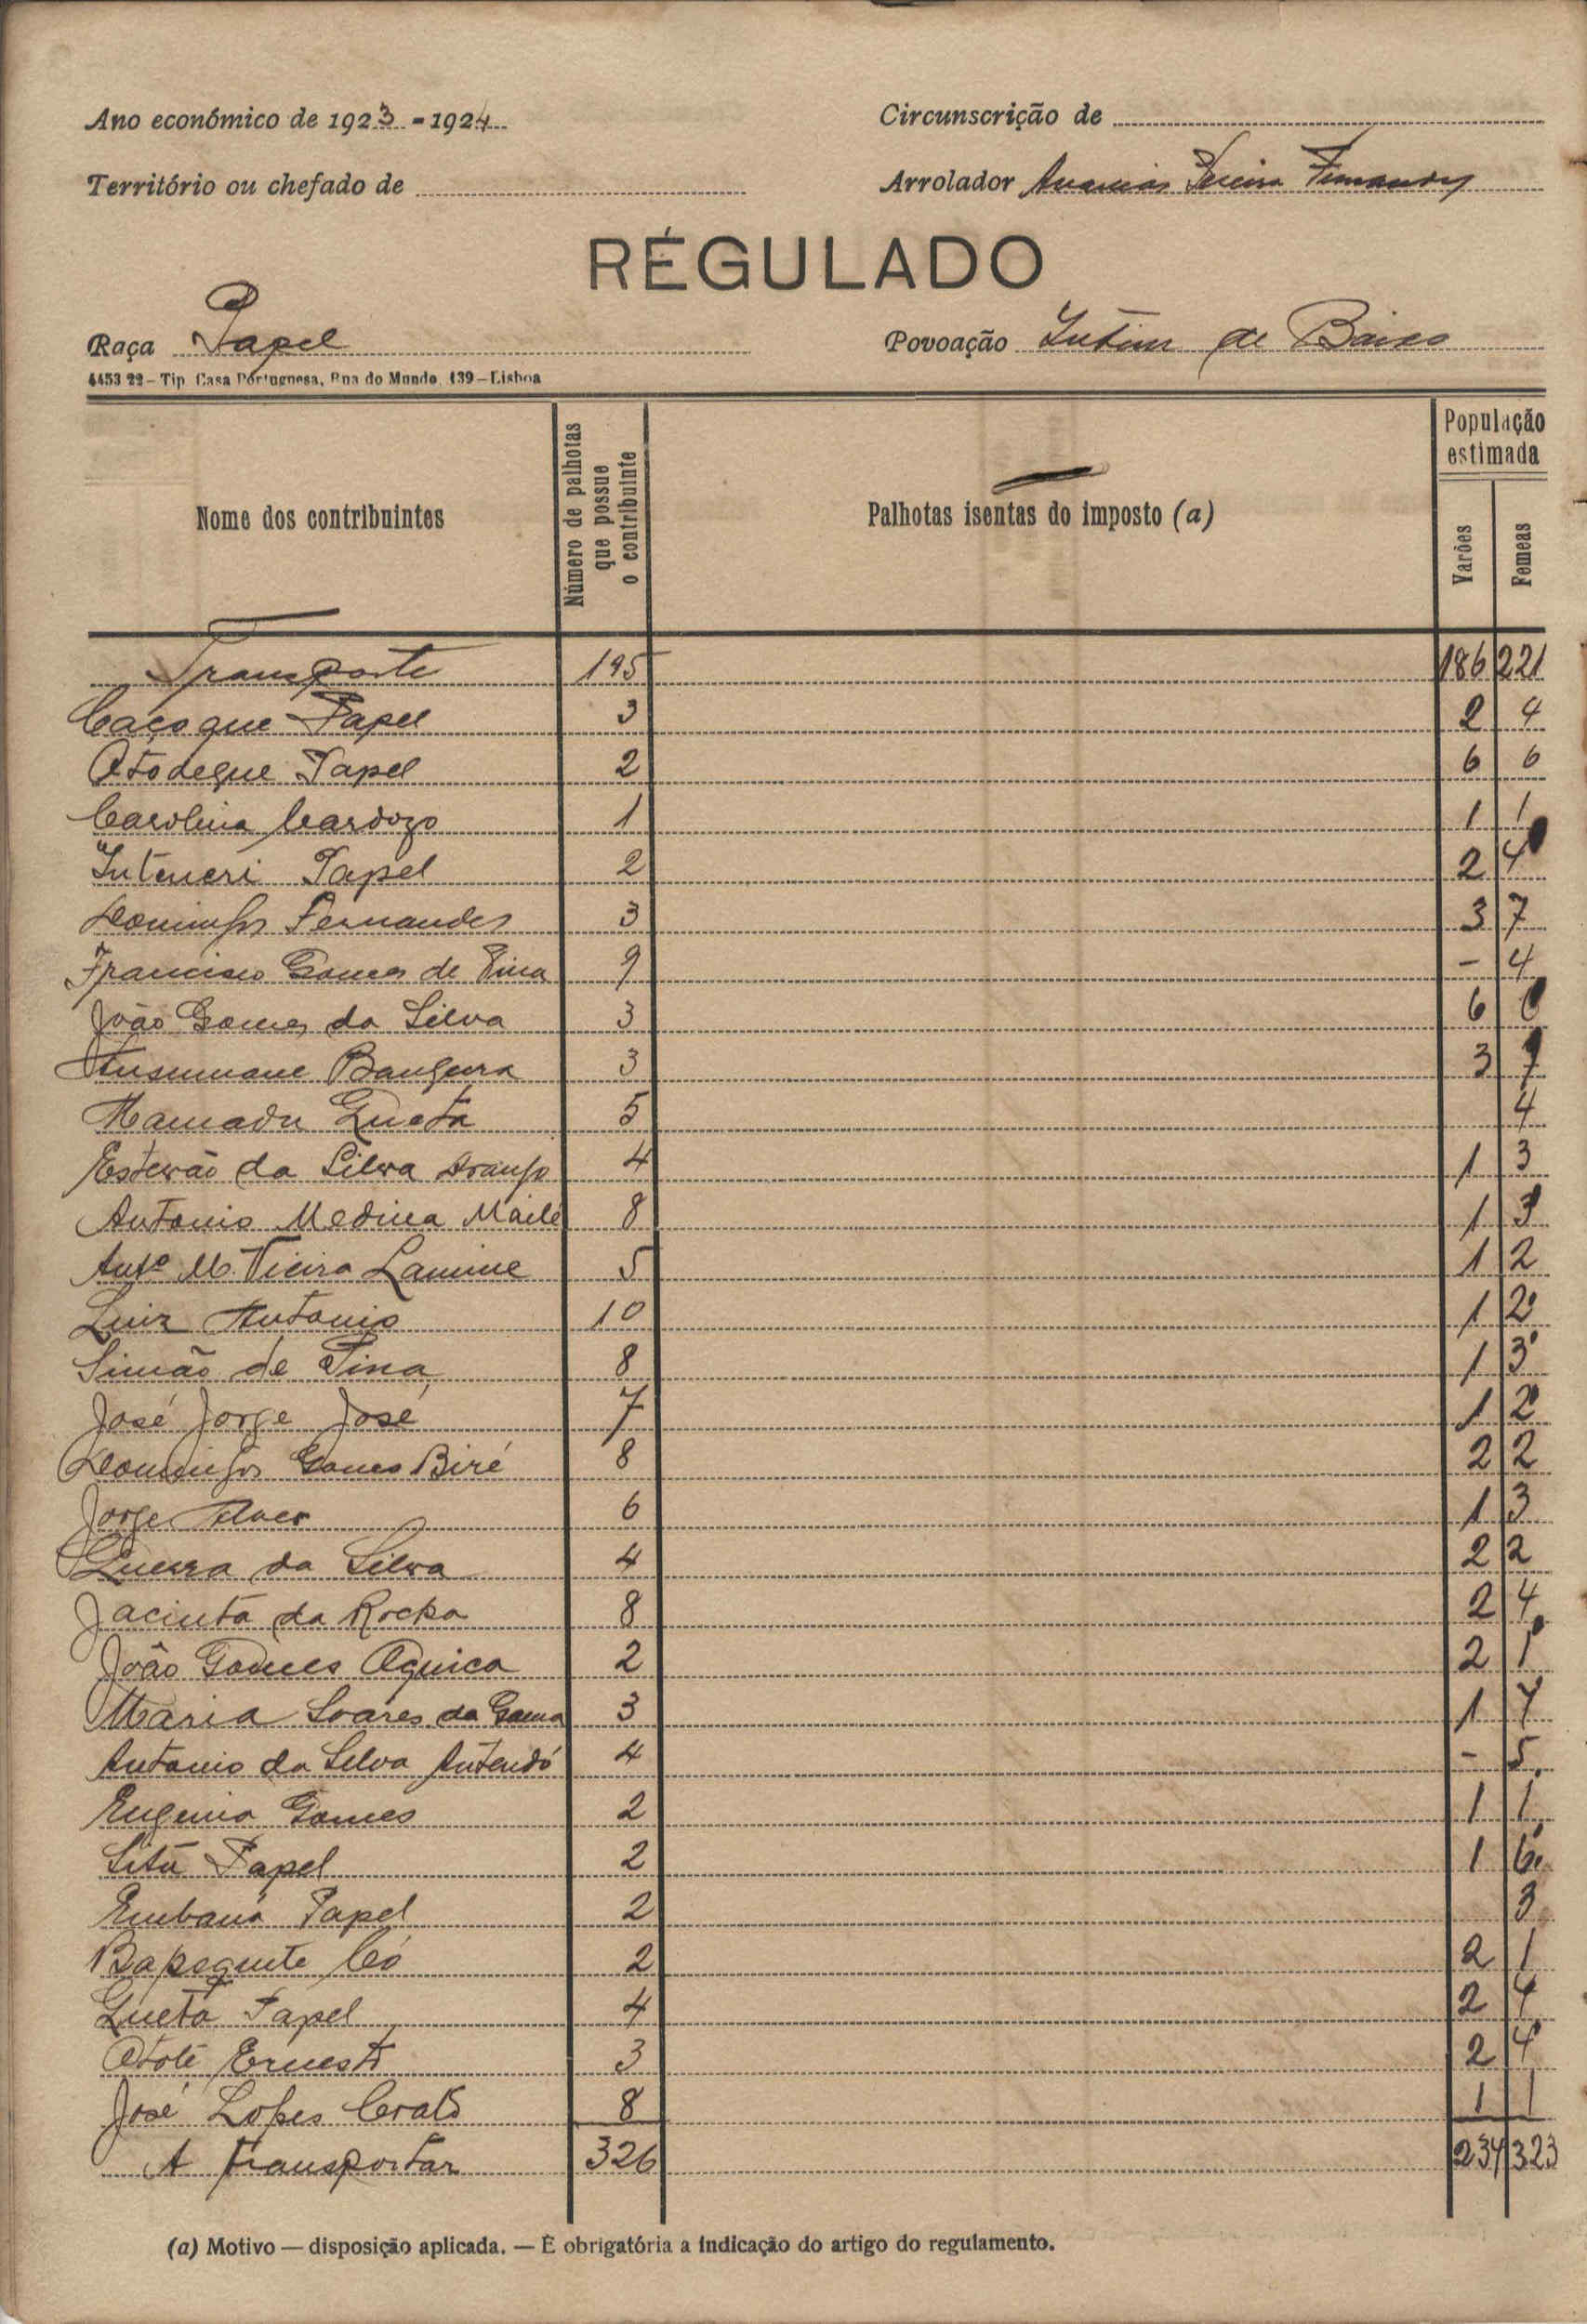 Ano económico de 1923-1924
Circunscrição de
Território ou chefado de
Arrolador Ananias Pereira Fernandes
RÉGULADO
Raça Papel
Povoação Intim de Baixo
4453 22 – Tip Casa Portuguesa, Rua do Mundo, 139 – Lisboa
Nome dos contribuintes
Número de palhotas que possue o contribuinte
Palhotas isentas do imposto (a)
População estimada
Varões Femeas
Transporte 195 186 221
Caçoque Papel 3 2 4
Otodeque Papel 2 6 6
Carolina Cardozo 1 1 1
Inteneri Papel 2 2 4
Domingos Fernandes 3 3 7
Francisco Gomes de Pina 9 - 4
João Gomes da Silva 3 6
Ansumane Bangura 3 3 7
Mamadu Queta 5 4
Estevão da Silva Araujo 4 1 3
Antonio Medina Mailé 8 1 3
Antº M. Vieira Lamine 5 1 2
Luiz Antonio 10 1 2
Simão de Pina 8 1 3
José Jorge José 7 1 2
Domingos Gomes Biré 8 2 2
Jorge Alves 6 1 3
Guerra da Silva 4 2 2
Jacinta da Rocha 8 2 4
João Gomes Oquica 2 2 1
Maria Soares da Gama 3 1 7
Antonio da Silva Antendó 4 - 5
Eugenio Gomes 2 1 1
Sitú Papel 2 1 6
Embaná Papel 2 3
Bapequete Có 2 2 1
Queta Papel 4 2 4
Ototé Ernesto 3 2 4
José Lopes 8 1 1
A transportar 326 234 323
(a) Motivo — disposição aplicada. — É obrigatória a indicação do artigo do regulamento.